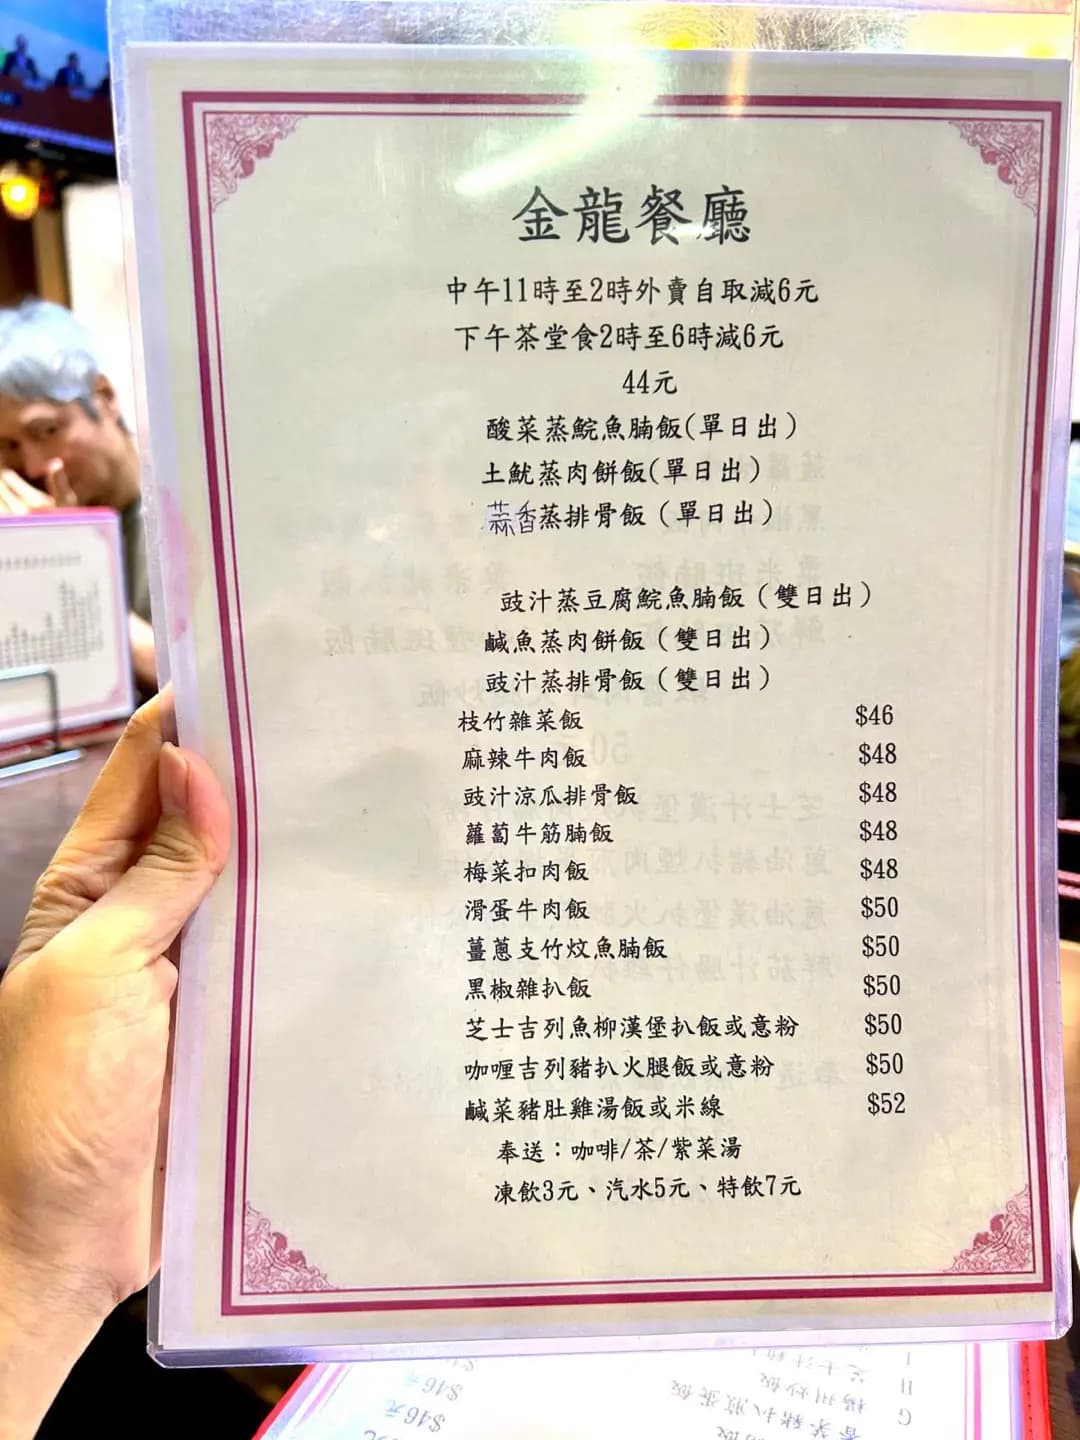 金龍餐廳
中午11時至2時外賣自取減6元
下午茶堂食2時至6時減6元
44元
酸菜蒸鯇魚腩飯(單日出)
土魷蒸肉餅飯(單日出)
蒜香蒸排骨飯(單日出)
豉汁蒸豆腐鯇魚腩飯(雙日出)
鹹魚蒸肉餅飯(雙日出)
豉汁蒸排骨飯(雙日出)
枝竹雜菜飯 $46
麻辣牛肉飯 $48
豉汁涼瓜排骨飯 $48
蘿蔔牛筋腩飯 $48
梅菜扣肉飯 $48
滑蛋牛肉飯 $50
薑蔥支竹炆魚腩飯 $50
黑椒雜扒飯 $50
芝士吉列魚柳漢堡扒飯或意粉 $50
咖喱吉列豬扒火腿飯或意粉 $50
鹹菜豬肚雞湯飯或米線 $52
奉送：咖啡/茶/紫菜湯
凍飲3元、汽水5元、特飲7元
$46元
$46元
芝士汁
H 楊州炒飯
G 香茶豬扒煎蛋飯